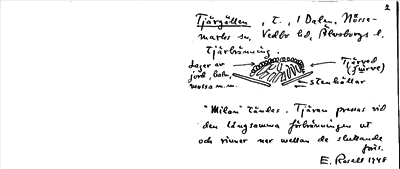 2
Tjärgållen, t., i Dalen, Nösse-
marks sn, Vedbo hd, Älvsborgs l.
Tjärbränning.
Lager av
jord, halm,
mossa m.m.
Tjärved
(furve)
stenhällar
"Milan" tändes. Tjäran pressas vid
den långsamma förbränningen ut
och rinner ner mellan de sluttande
E. Rosell 1948